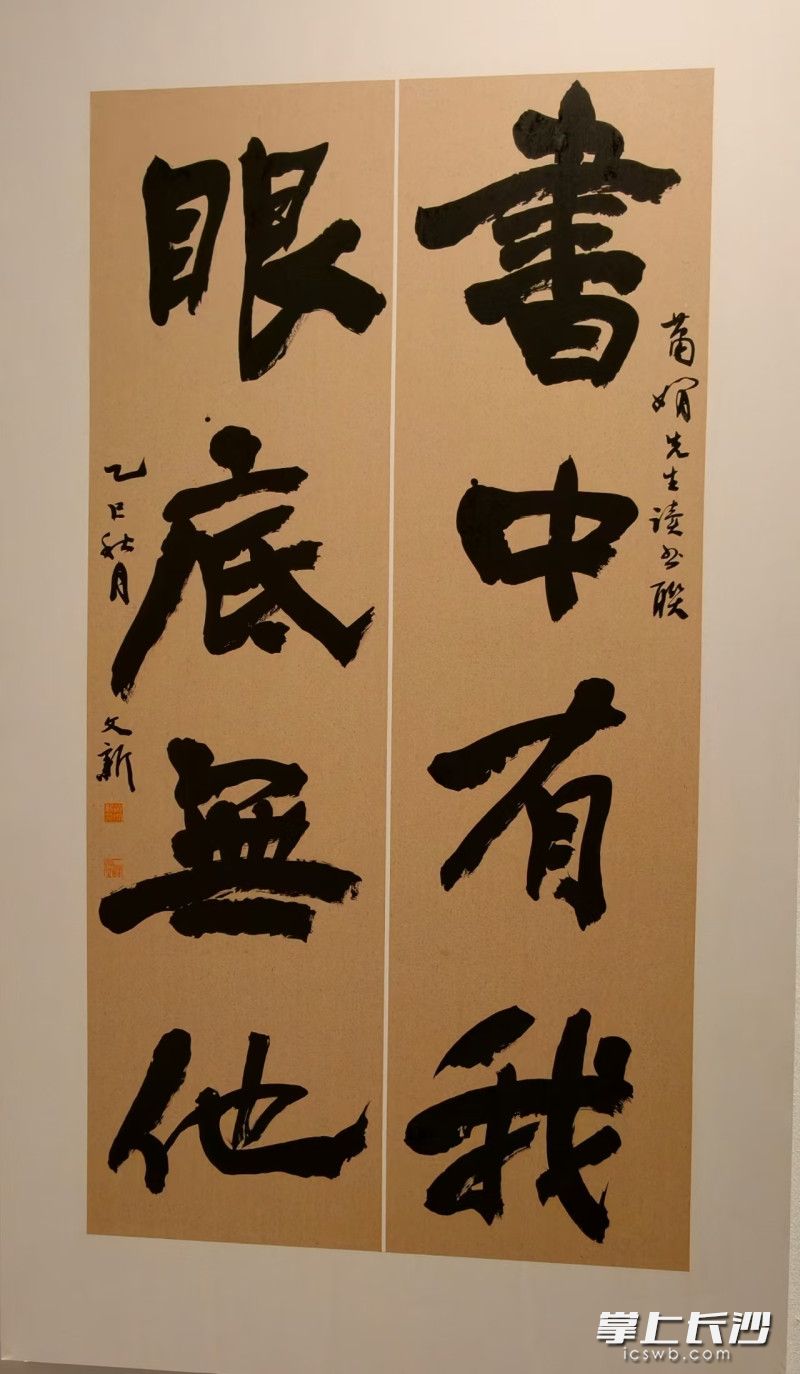 書中有我
萧娴先生读书联
眼底無他
乙巳秋月 文新
掌上长沙
icswb.com